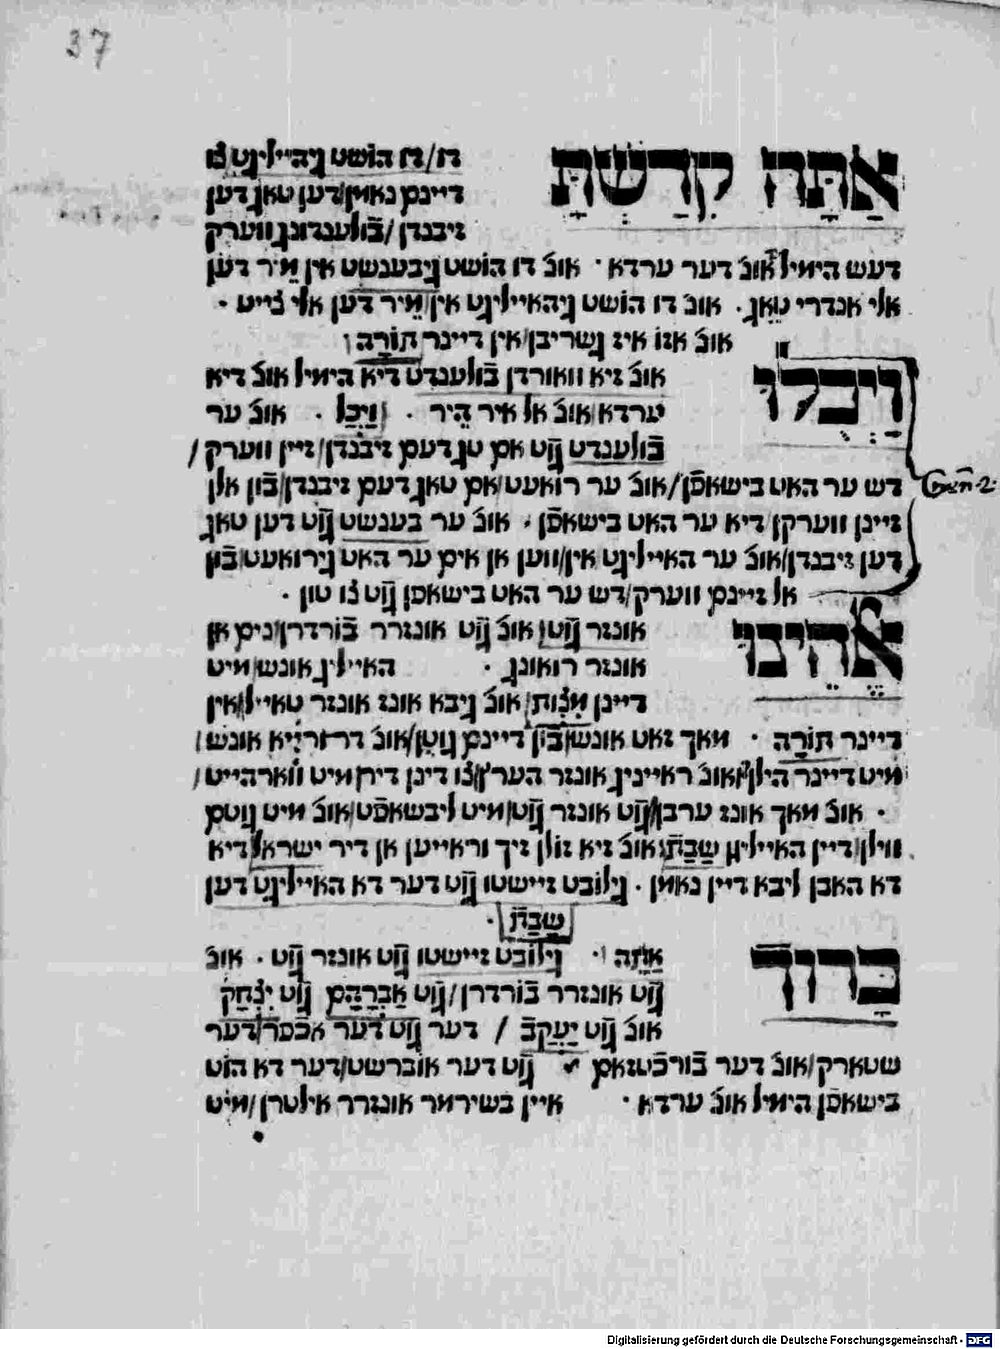 37
אַתָּה קִדַשְׁתָּ דו/דו הושט גיהיילינט צו
דיינם נאמין/דען טאג דען
זיבנדן/בֿולענדונג ווערק
דעש הימיל אוב דער ערדא· אוב דו הושט גיבענשט אין מֵיר דען
אלי אנדרי טאג. אוב דו הושט גיהאיילינט אין/מֵיר דען אלי צייט ·
אוב אזו איז גשריבן/אין דיינר תּוֹרָה
וַיְכֻלּוּ אוב זיא וואורדן בֿולענדט דיא הימיל אוב דיא
ערדא/אוב אל איר הֵיר · וַיְכַל · אוב ער
בֿולענדט גוֹט אם טג דעם זיבנדן/זיין ווערק/
Gen. 2.
דש ער האט בישאפֿן/אוב ער רואעט/אם טאג דעם זיבנדן/בֿון אלן
זיינן ווערקן/דיא ער האט בישאפֿן · אוב ער בענשט גוֹט דען טאג
דען זיבנדן/אוב ער האיילינט אין/ווען אן אים ער האט גירואעט בֿון
אל זיינם ווערק/דש ער האט בישאפֿן גוֹט צו טון ·
אֱלֹהֵינוּ אונזר גוֹט/אוב גוֹט אונזרר בֿורדרן/נים אן
אונזר רואונג · האיילין אונש/מיט
דיינן מִצְוֹת/אוב גיבא אונז אונזר טאייל/אין
דיינר תּוֹרָה · מאך זאט אונש/בֿון דיינם גוטן/אוב דר זרייא אונש/
מיט דיינר הילף/אוב ראייניג אונזר הערץ/צו דינן דיר/מיט ווארהייט/
· אוב מאך אונז ערבן/גוֹט אונזר גוֹט/מיט ליבשאפֿט/אוב מיט גוטם
ווילן/דיין האיילין שַבָּת/אוב זיא זולן זיך וראייען אן דיר ישראל/דיא
דא האבן ליבא דיין נאמן · גילובט זיישטו גוֹט דער דא האיילינט דען
שַבָּת ·
בָּרוּךְ אַתָּה · גילובט זיישטו גוֹט אונזר גוֹט · אוב
גוֹט אונזרר בֿורדרן/גוֹט אַבְרָהָם גוֹט יִצְחָק
אוב גוֹט יַעֲקֹב / דער גוֹט דער דער
שטארק/אוב דער בֿורכֿטזאם גוֹט דער אוברשט/דער דא הוֹט
בישאפֿן הימיל אוב ערדא · איין בשירמר אונזרר אילטרן/מיט